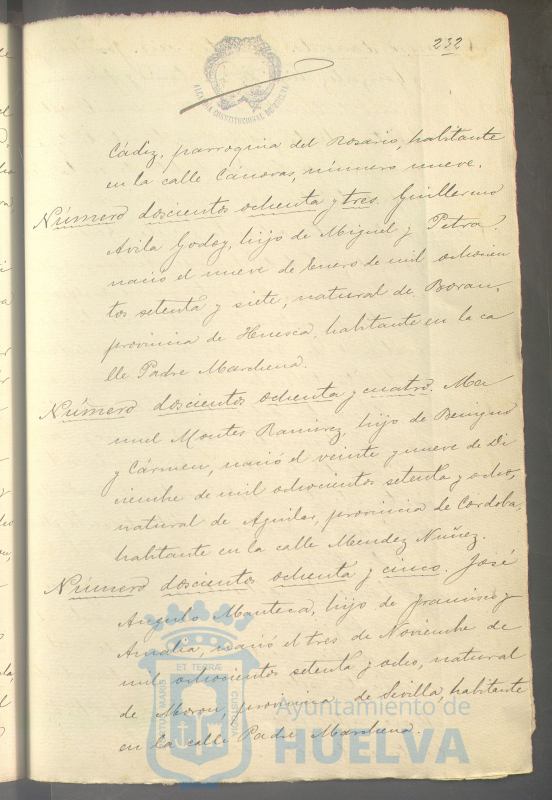 232
ALCALDIA CONSTITUCIONAL DE HUELVA
Cádiz, parroquia del Rosario, habitante
en la calle Cánovas, número nueve.
Número doscientos ochenta y tres. Guillermo
Avila Godoy, hijo de Miguel y Petra,
nació el nueve de Enero de mil ochocien
tos setenta y siete, natural de
provincia de Huesca, habitante en la ca
lle Padre Marchena.
Número doscientos ochenta y cuatro. Ma
nuel Montes Ramirez, hijo de Benigno
y Cármen, nació el veinte y nueve de Di
ciembre de mil ochocientos setenta y ocho,
natural de Aguilar, provincia de Cordoba,
habitante en la calle Mendez Nuñez.
Número doscientos ochenta y cinco. José
Angulo Manteca, hijo de Francisco y
Amalia, nació el tres de Noviembre de
mil ochocientos setenta y ocho, natural
de Moron, provincia de Sevilla, habitante
en la calle Padre Marchena.
PORTUS MARIS ET TERRÆ CUSTODIA
Ayuntamiento de
HUELVA